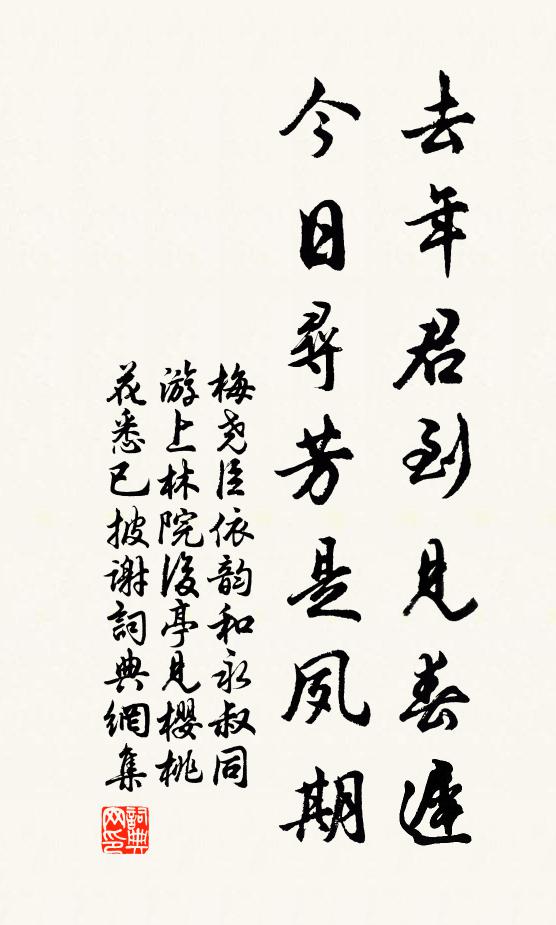 去年君到見春遲
今日尋芳是夙期
梅堯臣依韵和永叔同
游上林院後亭見櫻桃
花悉已披謝詞典網集
詞典
网印